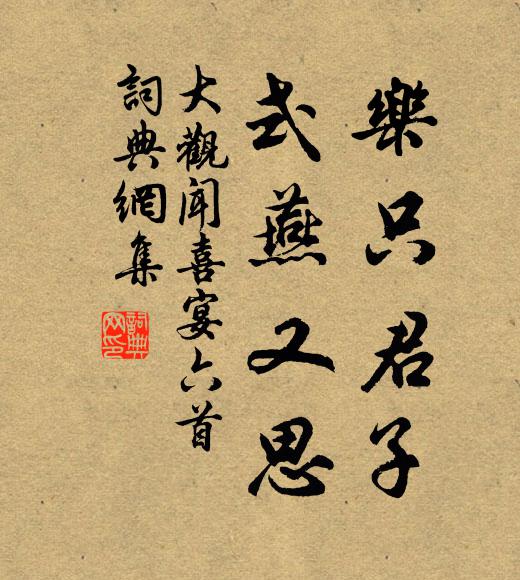 樂只君子
式燕又思
大觀聞喜宴六首
詞典網集
詞典網印